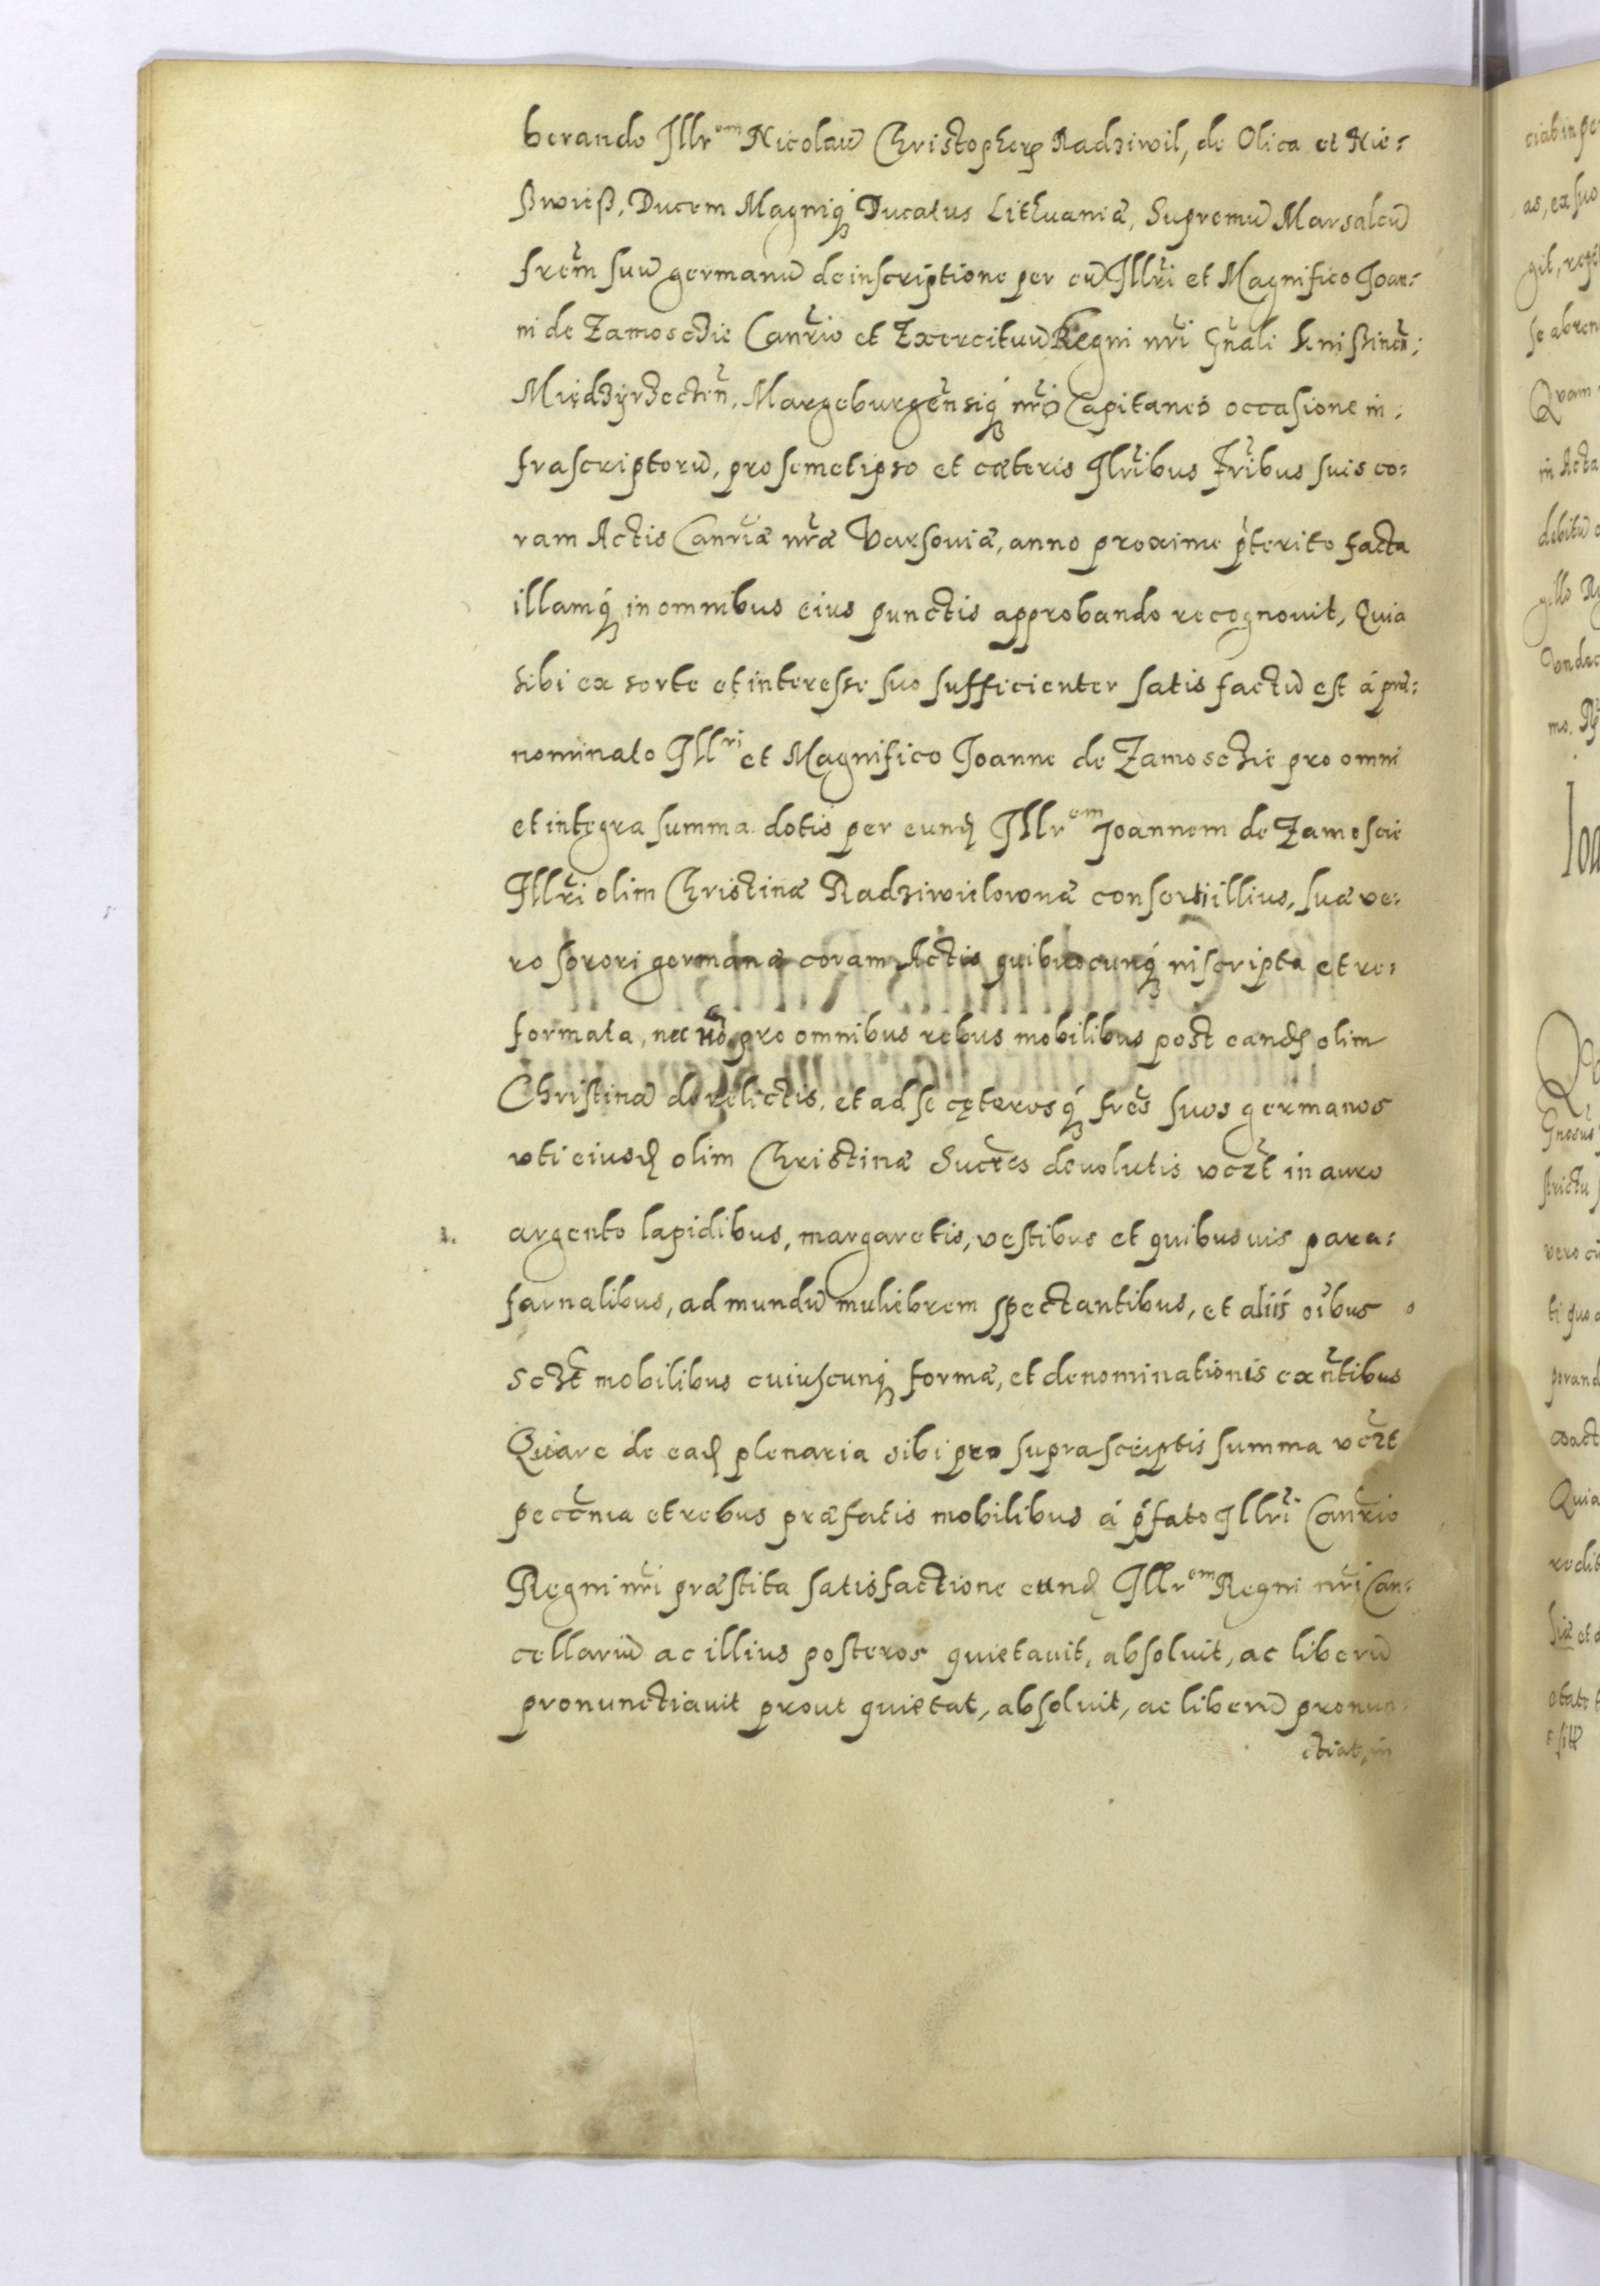 berando Illrem Nicolaū Christopherū Radziwil, de Olica et Nie-
ßwieß, Ducem Magniq́ Ducatus Lithuaniæ, Supremū Marsalcū
frem̃ suū germanū de inscriptione per eū Illr̃i et Magnifico Joan-
ni de Zamoscie Canr̃io et Exercituū Regni nr̃i Gñali
Międzyrzecień, Margeburgeñsiq́ nr̃o Capitaneo occasione in-
frascriptorū, pro semetipso et cæteris Ilr̃ibus Fr̃ibus suis co-
ram Actis Canr̃iæ nr̃æ Varsoviæ, anno proxime p̃terito facta
illamq́ in omnibus eius punctis approbando recognovit, Quia
sibi ex sorte et interesse suo sufficienter satis factū est á præ-
nominato Illri et Magnifico Joanne de Zamoschie pro omni
et integra summa dotis per eund Illrem Joannem de Zamoscie
Illr̃i olim Christinæ Radziwielownæ consorti illius, suæ ve-
ro sorori germanæ coram Actis quibuscunq́ inscripta et re-
formata, nec nō pro omnibus rebus mobilibus post eand olim
Christinā derelictis, et ad se cęterosq́ fres̃ suos germanos
vti eiusd olim Christinæ Sucr̃es devolutis vczt in auro
1. argento lapidibus, margaretis, vestibus et quibusuis para-
farnalibus, ad mundū muliebrem spectantibus, et aliis oĩbus
sczt mobilibus cuiuscunq́ formæ, et denominationis exñtibus
Quare de ead plenaria sibi pro suprascriptis summa vczt
peccūnia et rebus præfatis mobilibus á p̃fato Illr̃i Canr̃io
Regni nr̃i præstita satisfactione eund Illrem Regni nr̃i Can-
cellariū ac illius posteros quietavit, absolvit, ac liberū
pronunctiavit prout quietat, absolvit, ac liberū pronun-
ctiat, in